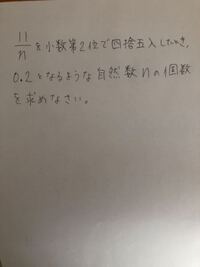 11/n を小数第2位で四捨五入したとき,
0.2となるような自然数nの個数
を求めなさい。